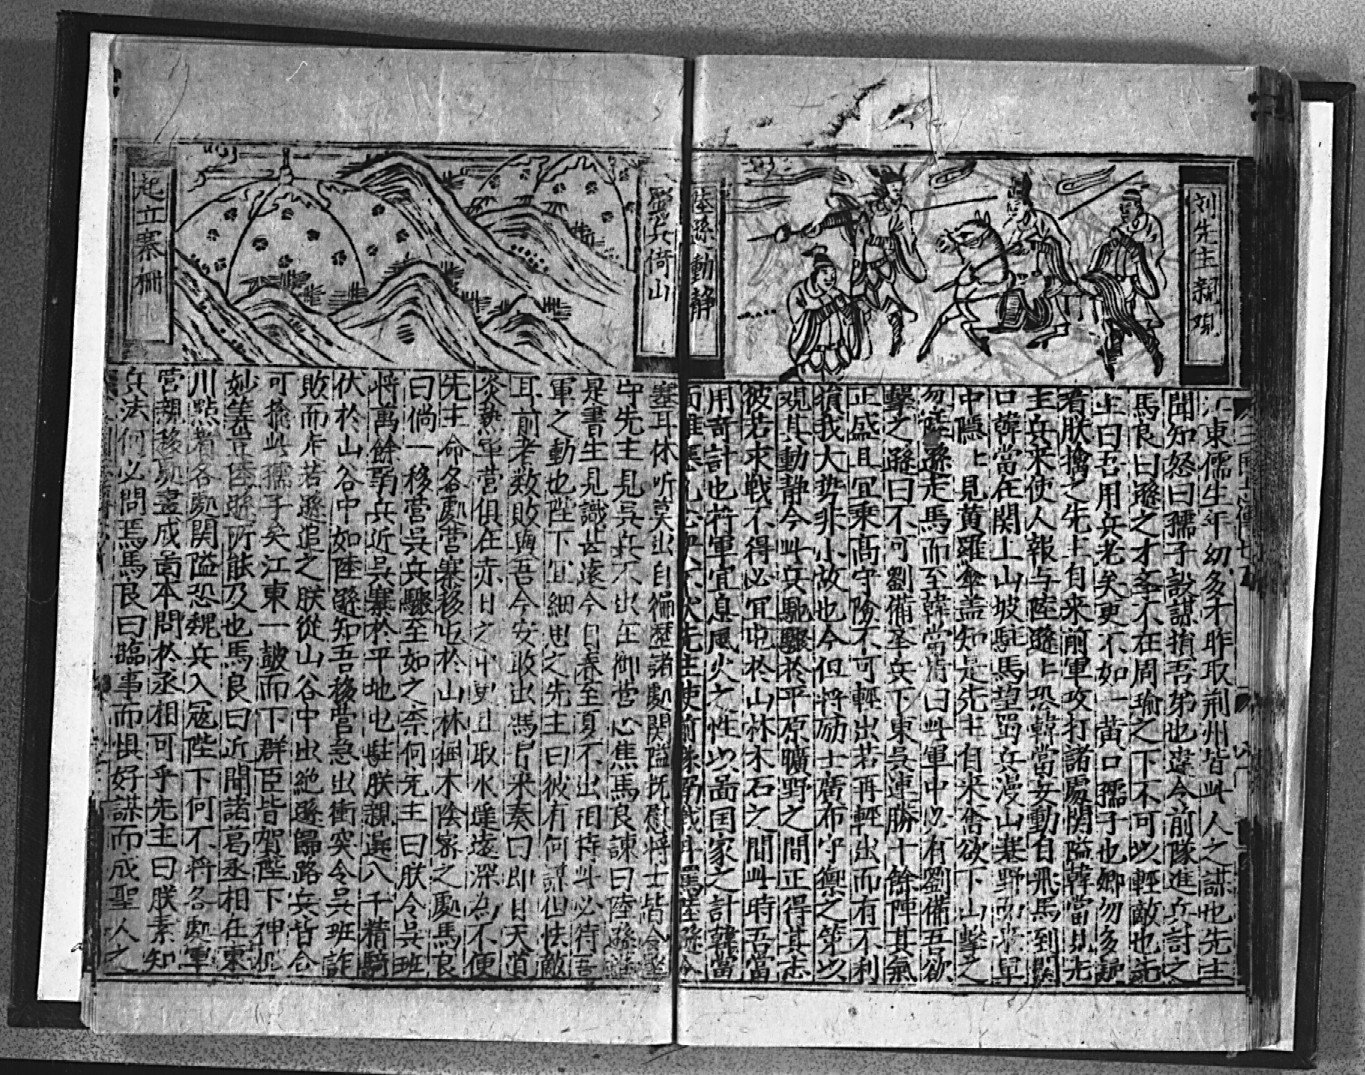 刘先主親現
陸遜動静
江東儒生年幼多才昨取荆州皆此人之謀也先主
聞知怒曰孺子設謀損吾弟也遂令前隊進兵討之
馬良曰遜之才不在周瑜之下不可以輕敵也先
主曰吾用兵老矣更不如一黃口孺子也卿勿多
看朕擒之先主自来前軍攻打諸處関隘韓當見先
主兵来使人報与陸遜上恐韓當妄動自飛馬到
口韓當在関上山坡駐馬望蜀兵漫山塞野而来軍
中隱上見黃羅傘盖知是先主自来當欲下山擊之
勿陸遜走馬而至韓當指曰此軍中必有劉備吾欲
擊之遜曰不可劉備奉兵下東吳連勝十餘陣其氣
正盛且冝乗高守險不可輕出若再輕出而有不利
損我大势非小故也今但将励士廣布守禦之第以
观其動静今此兵馳驟於平原曠野之間正得其志
彼若求戰不得必冝屯於山林木石之間此時吾當
用奇計也将軍宜息風火之性以啚国家之計韓當
先主使前隊搦戰耳陸遜令
壘兵倚山
起立寨栅
塞耳休听莫出自徧歴諸處関隘抚慰将士皆令堅
守先主見吳兵不出在御营心焦馬良諫曰陸遜
是書生見識甚遠今自春至夏不出相持此必待吾
軍之動也陛下冝細思之先主曰彼有何謀但怯敵
耳前者数敗與吾今安敢出馬良来奏曰即日天道
炎熱軍营俱在赤日之中更且取水遥遠深為不便
先主命各處营寨移屯於山林樹木陰密之處馬良
曰倘一移营吳兵驟至如之奈何先主曰朕令吳班
将萬餘弱兵近吳寨於平地屯駐朕親選八千精騎
伏於山谷中如陸遜知吾移营急出衝突令吳班詐
敗而斥若遜追之朕從山谷中出絶遜歸路兵皆合
可擒此孺子矣江東一皷而下群臣皆賀陛下神机
妙筭豈陸遜所能及也馬良曰近聞諸葛丞相在東
川點看各處関隘恐魏兵入冦陛下何不将各處軍
营親移處畫成啚本問於丞相可乎先主曰朕素知
兵法何必問焉馬良曰臨事而惧好謀而成聖人之